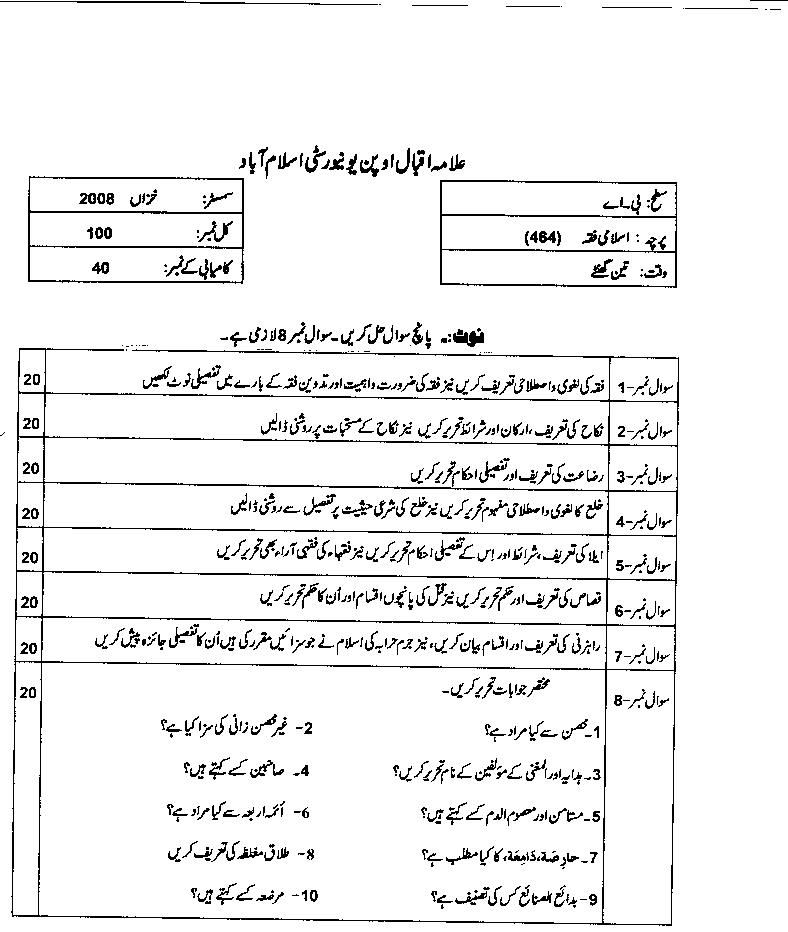 علامہ اقبال اوپن یونیورسٹی اسلام آباد
سطح: بی۔اے
سمسٹر: خزاں 2008
پرچہ: اسلامی فقہ (464)
کل نمبر: 100
وقت: تین گھنٹے
کامیابی کے نمبر: 40
نوٹ:۔ پانچ سوال حل کریں۔ سوال نمبر 8 لازمی ہے۔
سوال نمبر-1 فقہ کی لغوی واصطلاحی تعریف کریں نیز فقہ کی ضرورت واہمیت اور تدوین فقہ کے بارے میں تفصیلی نوٹ لکھیں 20
سوال نمبر-2 نکاح کی تعریف، ارکان اور شرائط تحریر کریں نیز نکاح کے مستحبات پر روشنی ڈالیں 20
سوال نمبر-3 رضاعت کی تعریف اور تفصیلی احکام تحریر کریں 20
سوال نمبر-4 خلع کا لغوی واصطلاحی مفہوم تحریر کریں نیز خلع کی شرعی حیثیت پر تفصیل سے روشنی ڈالیں 20
سوال نمبر-5 ایلا کی تعریف، شرائط اور اِس کے تفصیلی احکام تحریر کریں نیز فقہاء کی فقہی آراء بھی تحریر کریں 20
سوال نمبر-6 قصاص کی تعریف اور حکم تحریر کریں نیز قتل کی پانچوں اقسام اور اُن کا حکم تحریر کریں 20
سوال نمبر-7 راہزنی کی تعریف اور اقسام بیان کریں، نیز جرم حرابہ کی اسلام نے جو سزائیں مقرر کی ہیں اُن کا تفصیلی جائزہ پیش کریں 20
سوال نمبر-8 مختصر جوابات تحریر کریں۔ 20
1۔ محصن سے کیا مراد ہے؟ 2- غیر محصن زانی کی سزا کیا ہے؟
3۔ ہدایہ اور المغنی کے مؤلفین کے نام تحریر کریں؟ 4۔ صاحبین کسے کہتے ہیں؟
5۔ مستامن اور معصوم الدم کسے کہتے ہیں؟ 6- آئمہ اربعہ سے کیا مراد ہے؟
7۔ حارِصَة، دَامِعَة، کا کیا مطلب ہے؟ 8- طلاق مغلظہ کی تعریف کریں
9- بدائع الصنائع کس کی تصنیف ہے؟ 10- مرضعہ کسے کہتے ہیں؟